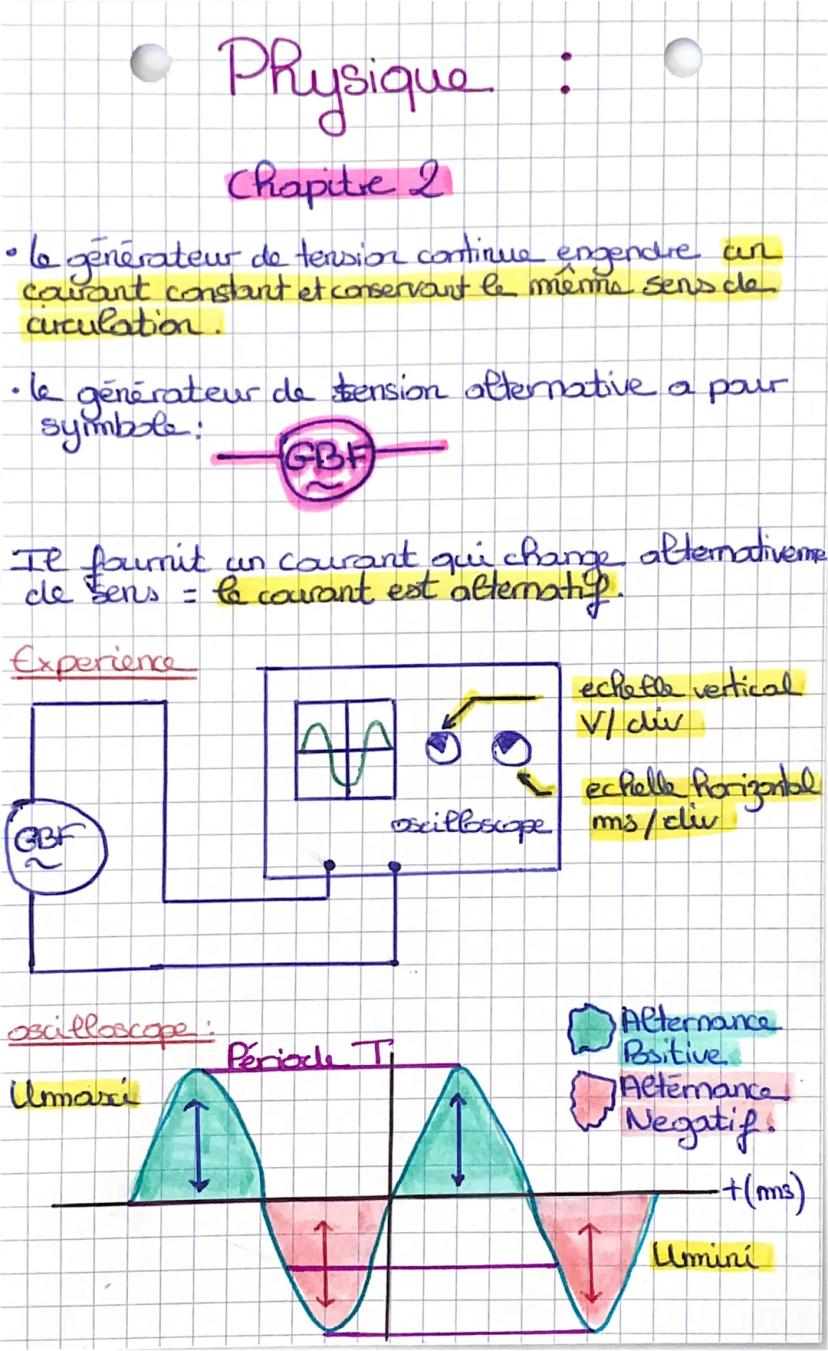 Physique :
Chapitre 2
• le générateur de tension continue engendre un
courant constant et conservant le même sens de
circulation.
• le générateur de tension alternative a pour
symbole:
GBF
~
Il fournit un courant qui change alternativeme
de sens = le courant est alternatif.
Experience
echelle vertical
V/div
GBF
~
echelle horizontal
ms/div
oscilloscope
oscilloscope:
Alternance
Positive
Période T
Umaxi
Alternance
Negatif.
t(ms)
Umini